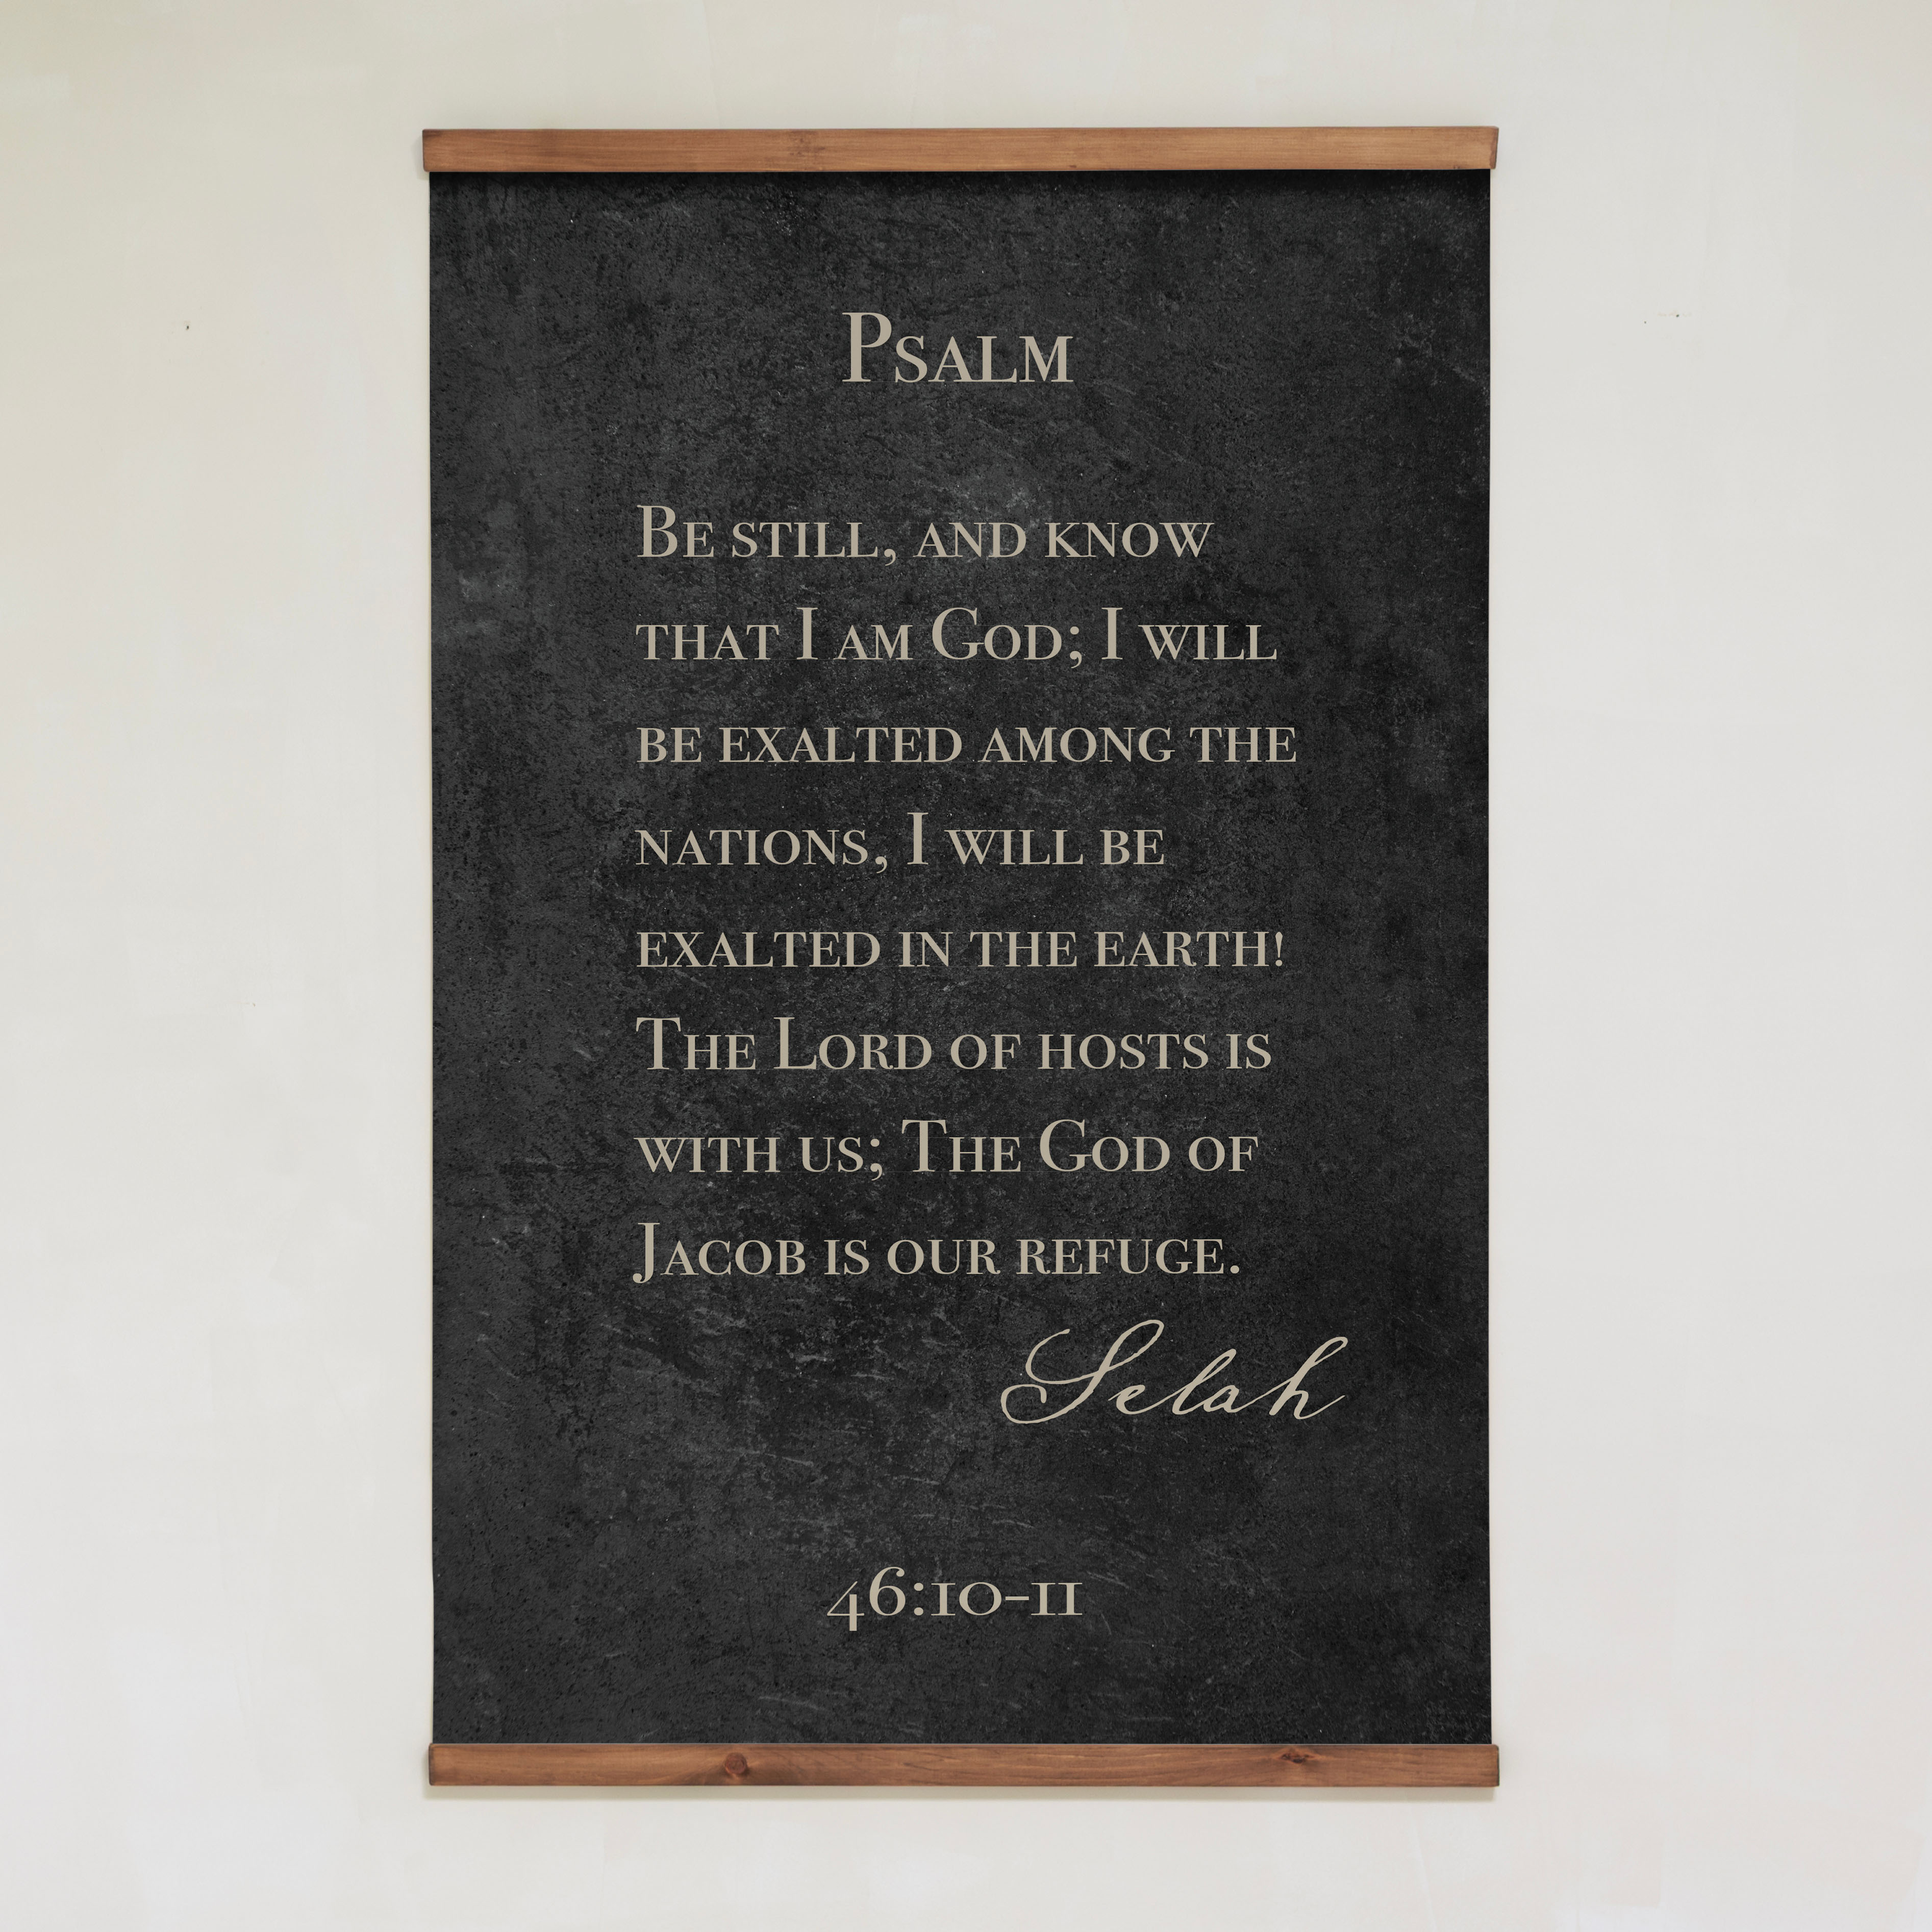 Psalm
Be still, and know
that I am God; I will
be exalted among the
nations, I will be
exalted in the earth!
The Lord of hosts is
with us; The God of
Jacob is our refuge.
Selah
46:10-11